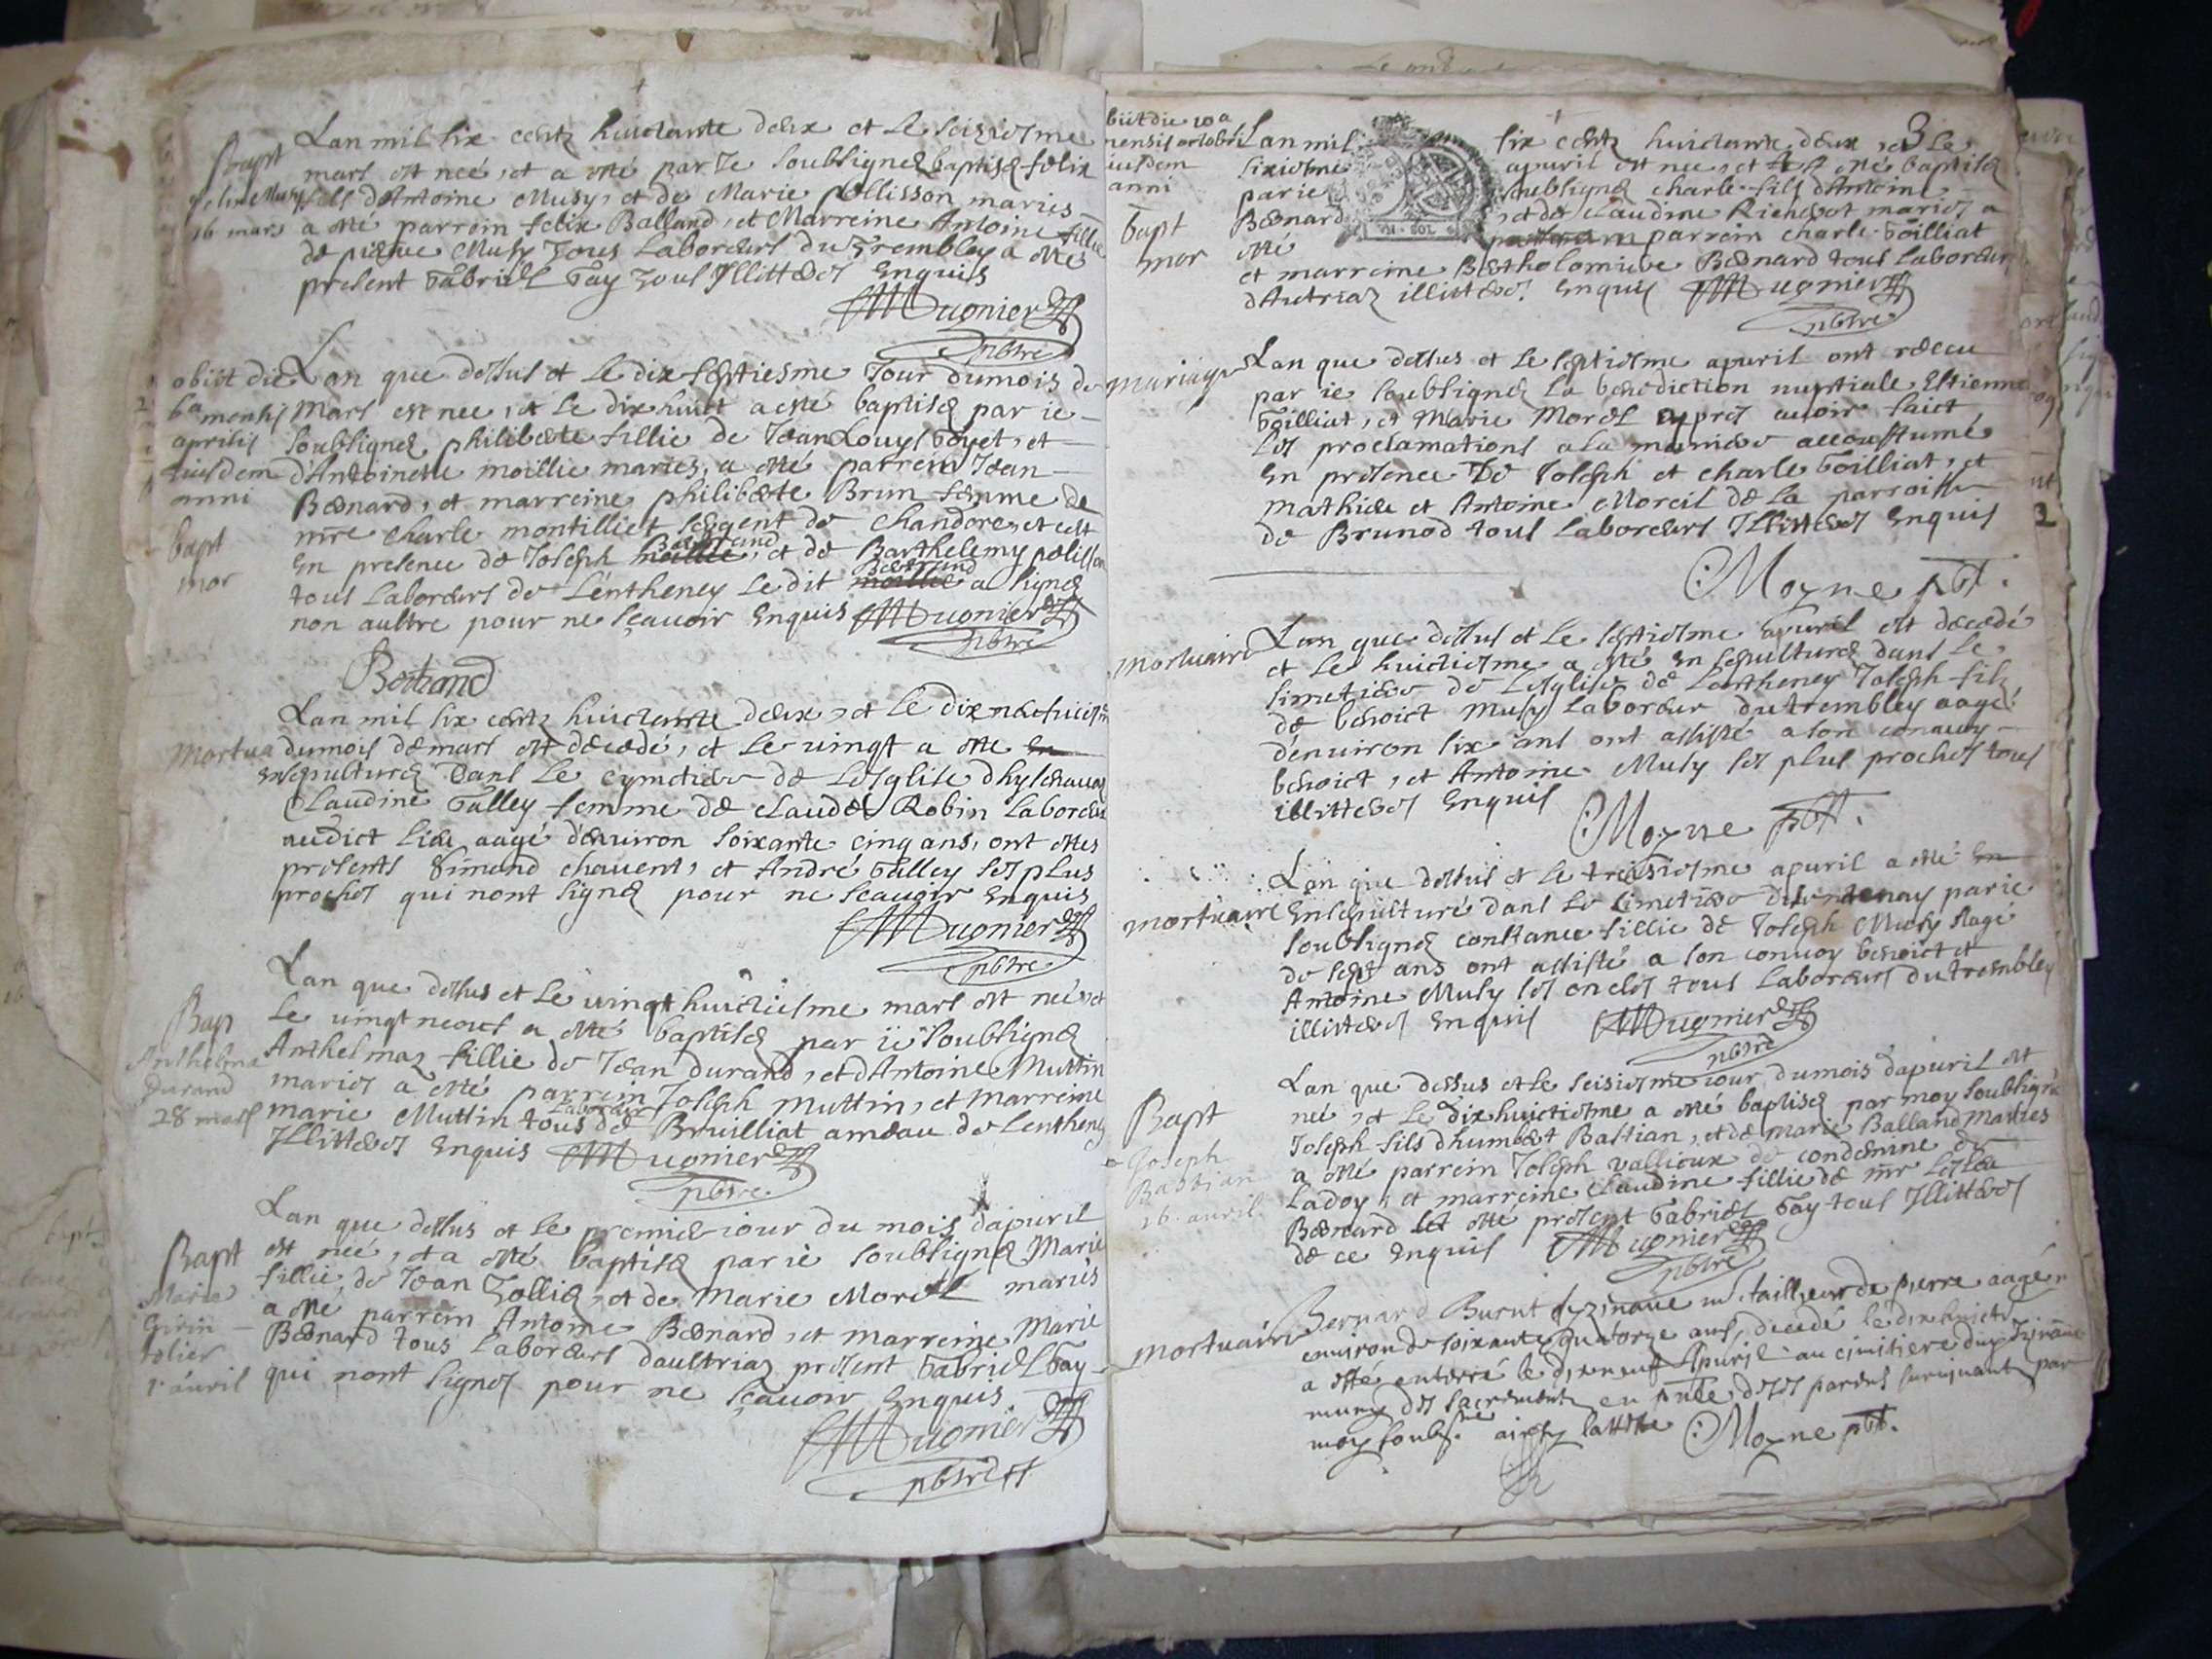 Lan mil six centz huictante deux et le seisiesme
Bapt
mars est neé, et a esté par Ie soubsigné baptisé felix
fils d'Antoine Musy, et de Marie pellisson mariés
16 mars
a esté parrein felix Balland, et Marreine Antoine fillie
de pierre Musy tous Laboreurs du Trembley a esté
present Gabriel Gay tous Illitterés Enquis
Mugnier
pbtre
obiit die
6a mensis
aprilis
eiusdem
anni
bapt
mor
Lan que dessus et Le dix septiesme Iour dumois de
Mars est nee, et Le dix huict a esté baptisé par ie
soubsigné philiberte fillie de Jean Louys Goyet, et
d'Antoinette moillie mariés, a esté parrein Jean
Bernard, et marreine philiberte Brun femme de
mre Charle montilliet sergent de Chandore, et cest
En presence de Joseph Bertrand, et de Barthelemy pelisson
tous Laboreurs de Lentheney Le dit Bertrand a signé
non aultre pour ne sçauoir Enquis Mugnier
pbtre
Bertrand
Lan mil six centz huictante deux, et Le dix neufuiesme
Mortua
dumois de mars est decedé, et Le uingt a esté En
ensepulturé Dans Le cymetiere de Lesglise
Claudine Galley femme de Claude Robin Laboreur
audict Lieu aagé d'enuiron soixante cinq ans, ont estes
presents Simand chauent, et André Galley ses plus
proches qui nont signé pour ne sçauoir Enquis
Mugnier
pbtre
Lan que dessus et Le uingt huictiesme mars est neé, et
Bap
Anthelma
Durand
28 mars
Le uingt neouf a esté baptisé par ie soubsigné
Anthelmaz fillie de Jean Durand, et d'Antoine Muttin
mariés a esté parrein Joseph Muttin, et Marreine
marie Muttin tous Laboreurs de Bruilliat ameau de Lentheney
Illitterés Enquis Mugnier
pbtre
Lan que dessus et Le premier iour du mois d'apuril
Bapt
Marie
1r auril
est neé, et a esté baptisé par ie soubsigné Marie
fillie de Jean Tollié, et de Marie Morel mariés
a esté parrein Antoine Bernard, et Marreine Marie
Bernard tous Laboreurs daultriaz present Gabriel Gay
qui nont signés pour ne sçauoir Enquis
Mugnier
pbtre
3
obiit die 10a
mensis octobris
eiusdem
anni
bapt
mor
Lan mil six centz huictante deux, et Le
sixiesme apuril est nee, et a esté baptisé
par ie soubsigné charle fils d'Antoine
Bernard, et de Claudine mariés a
esté parrein Charle Goilliat
et marreine Bertholomiere Bernard tous Laboreurs
d'Autriaz illitterés. Enquis Mugnier
pbtre
mariage
Lan que dessus et Le septiesme apuril ont receu
par ie soubsigné La benediction nuptiale Estienne
Goilliat, et Marie Morel apres auoir faict
les proclamations a la maniere accoustumé
En presence De Joseph et Charle Goilliat, et
Mathieu et Antoine Moreil de La parroisse
de Brunod tous Laboreurs Illitterés Enquis
Moyne pbt.
mortuaire
Lan que dessus et Le septiesme apuril est decedé
et Le huictiesme a esté En sepulturé dans Le
simetiere de Lesglise de Lentheney Joseph filz
de benoict Musy Laboreur du trembley aagé
denuiron six ans ont assisté a son conuoy
benoict, et Antoine Musy ses plus proches tous
illitterés Enquis
Moyne pbt.
mortuaire
Lan que dessus et Le treisiesme apuril a esté En
Ensepulturé dans Le simetiere par ie
soubsigné constance fillie de Joseph Musy Aagé
de sept ans ont assisté a son conuoy benoict et
Antoine Musy ses oncles tous Laboreurs du trembley
illitterés Enquis Mugnier
pbtre
Bapt
Joseph
Bastian
16 auril
Lan que dessus et Le seisiesme iour dumois d'apuril est
neé, et Le dix huictiesme a esté baptisé par moy soubsigné
Joseph fils dhumbert Bastian, et de Marie Balland Mariés
a esté parrein Joseph vallioux de condamine de
Ladoy, et marreine Claudine fillie de mr
Bernard et esté present Gabriel Gay tous Illitterés
de ce Enquis Mugnier
pbtre
mortuaire
Bernard Burnt tailleur de pierre aagé
enuiron de soixante quatorze ans, decedé le dix huict
a esté enterré le dixneuf Apuril au cimitiere
muny des sacrements en de ses parens suruiuants par
moy soubs. Moyne pbt.